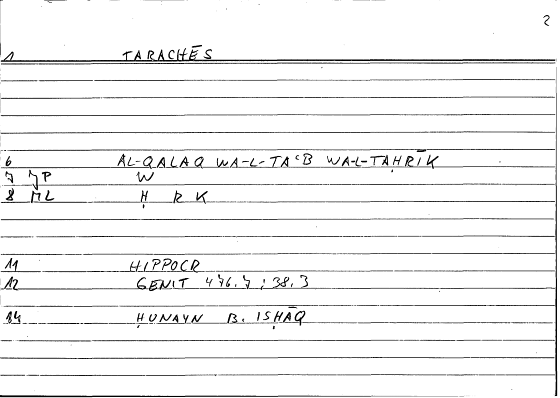 2
1 TARACHĒS
6 AL-QALAQ WA-L-TAʿB WA-L-TAḤRĪK
7 7P W
8 ML Ḥ R K
11 HIPPOCR
12 GENIT 476.7 ; 38.3
14 ḤUNAYN B. ISḤĀQ